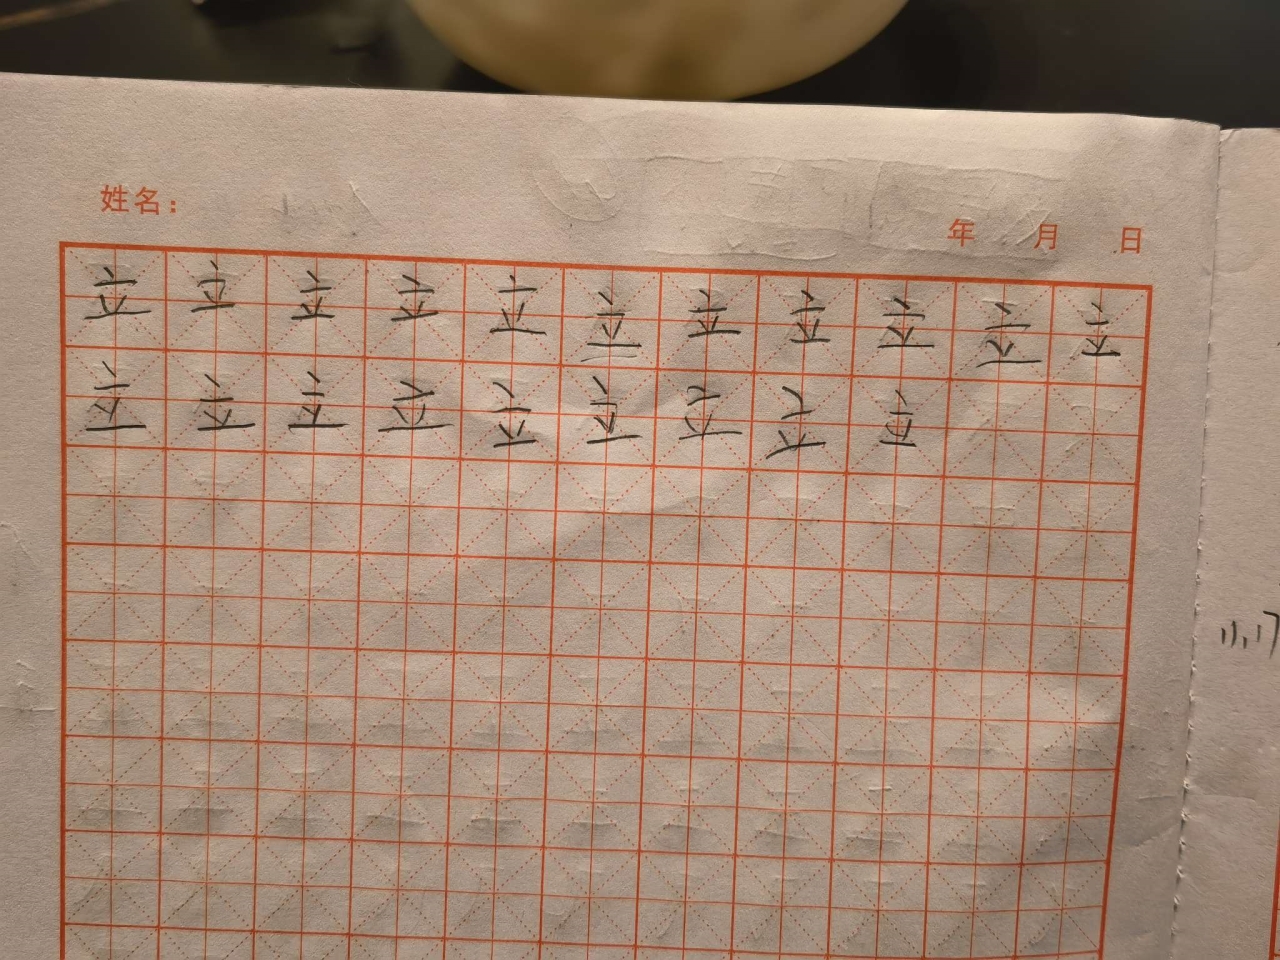 姓名：
年 月 日
立 立 立 立 立 立 立 立 立 立 立
立 立 立 立 立 立 立 立 立